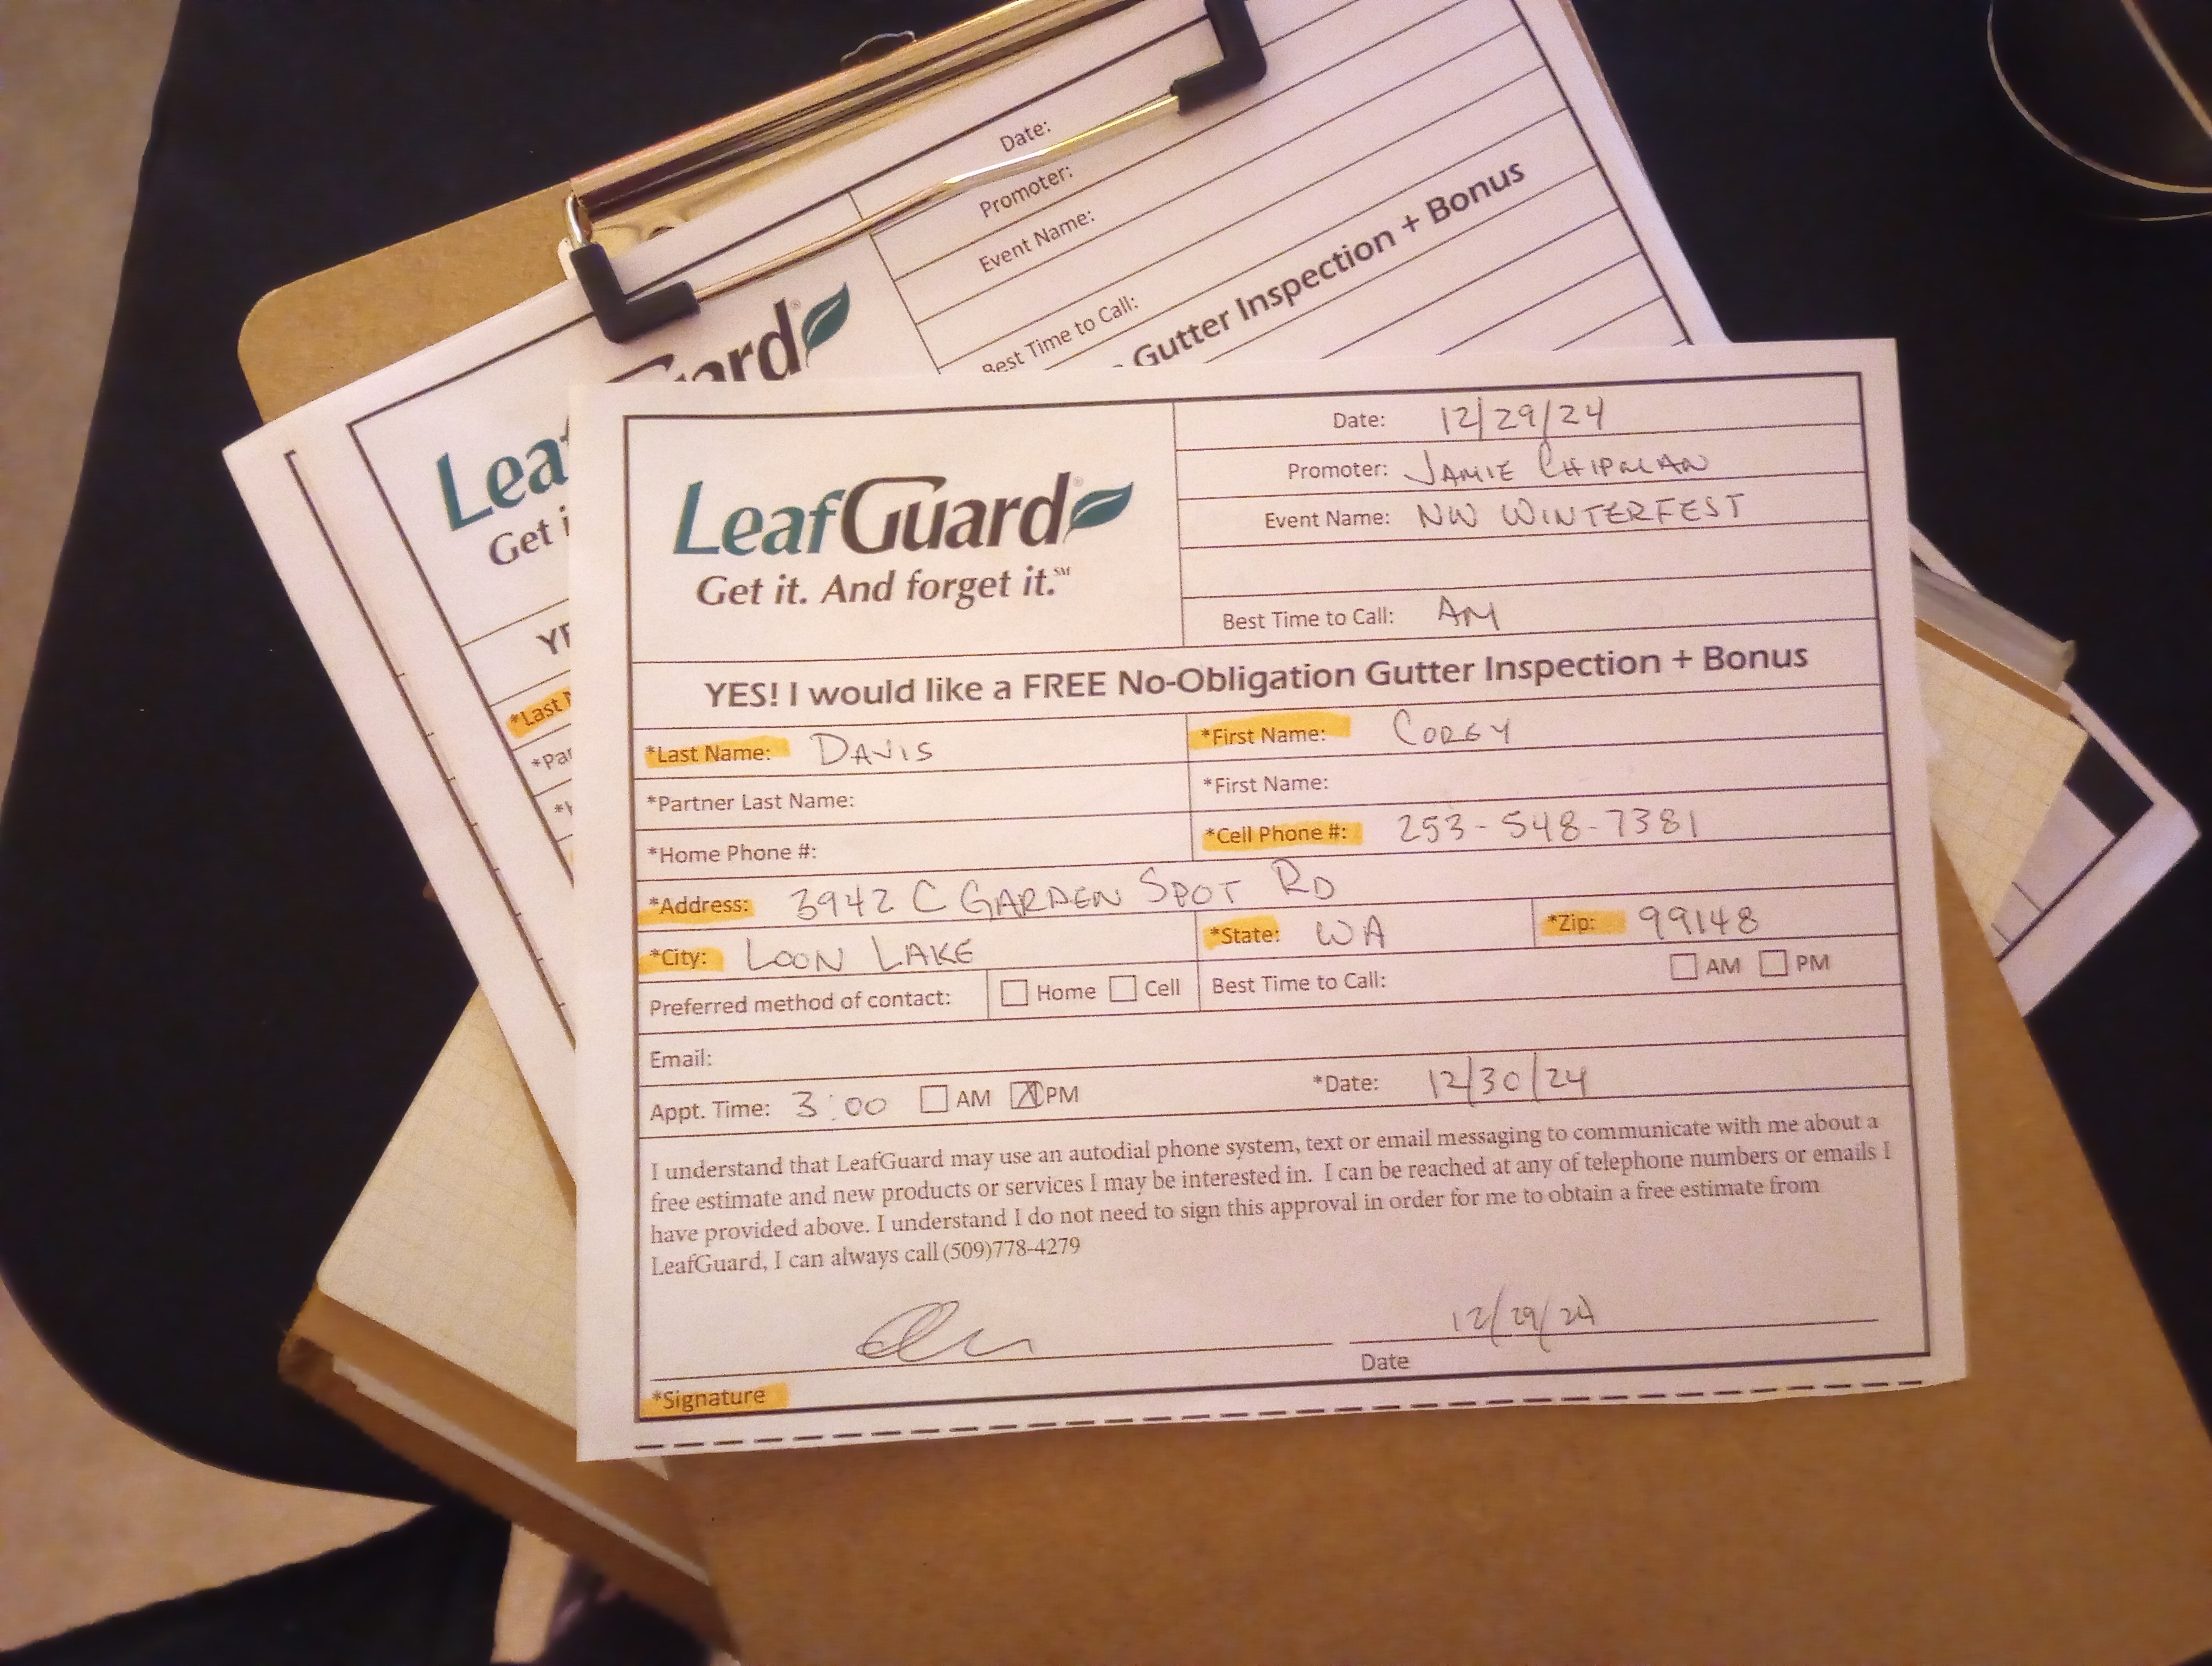 Date:
Promoter:
Event Name:
Best Time to Call:
Gutter Inspection + Bonus
Leaf
Get i
*Last
LeafGuard®
Get it. And forget it.℠
Date: 12/29/24
Promoter: JAMIE CHIPMAN
Event Name: NW WINTERFEST
Best Time to Call: AM
YES! I would like a FREE No-Obligation Gutter Inspection + Bonus
*Last Name: DAVIS *First Name: COREY
*Partner Last Name: *First Name:
*Home Phone #: *Cell Phone #: 253-548-7381
*Address: 3942 C GARDEN SPOT RD
*City: LOON LAKE *State: WA *Zip: 99148
Preferred method of contact: Home Cell Best Time to Call: AM PM
Email:
Appt. Time: 3:00 AM PM *Date: 12/30/24
I understand that LeafGuard may use an autodial phone system, text or email messaging to communicate with me about a
free estimate and new products or services I may be interested in. I can be reached at any of telephone numbers or emails I
have provided above. I understand I do not need to sign this approval in order for me to obtain a free estimate from
LeafGuard, I can always call (509)778-4279
12/29/24
Date
*Signature